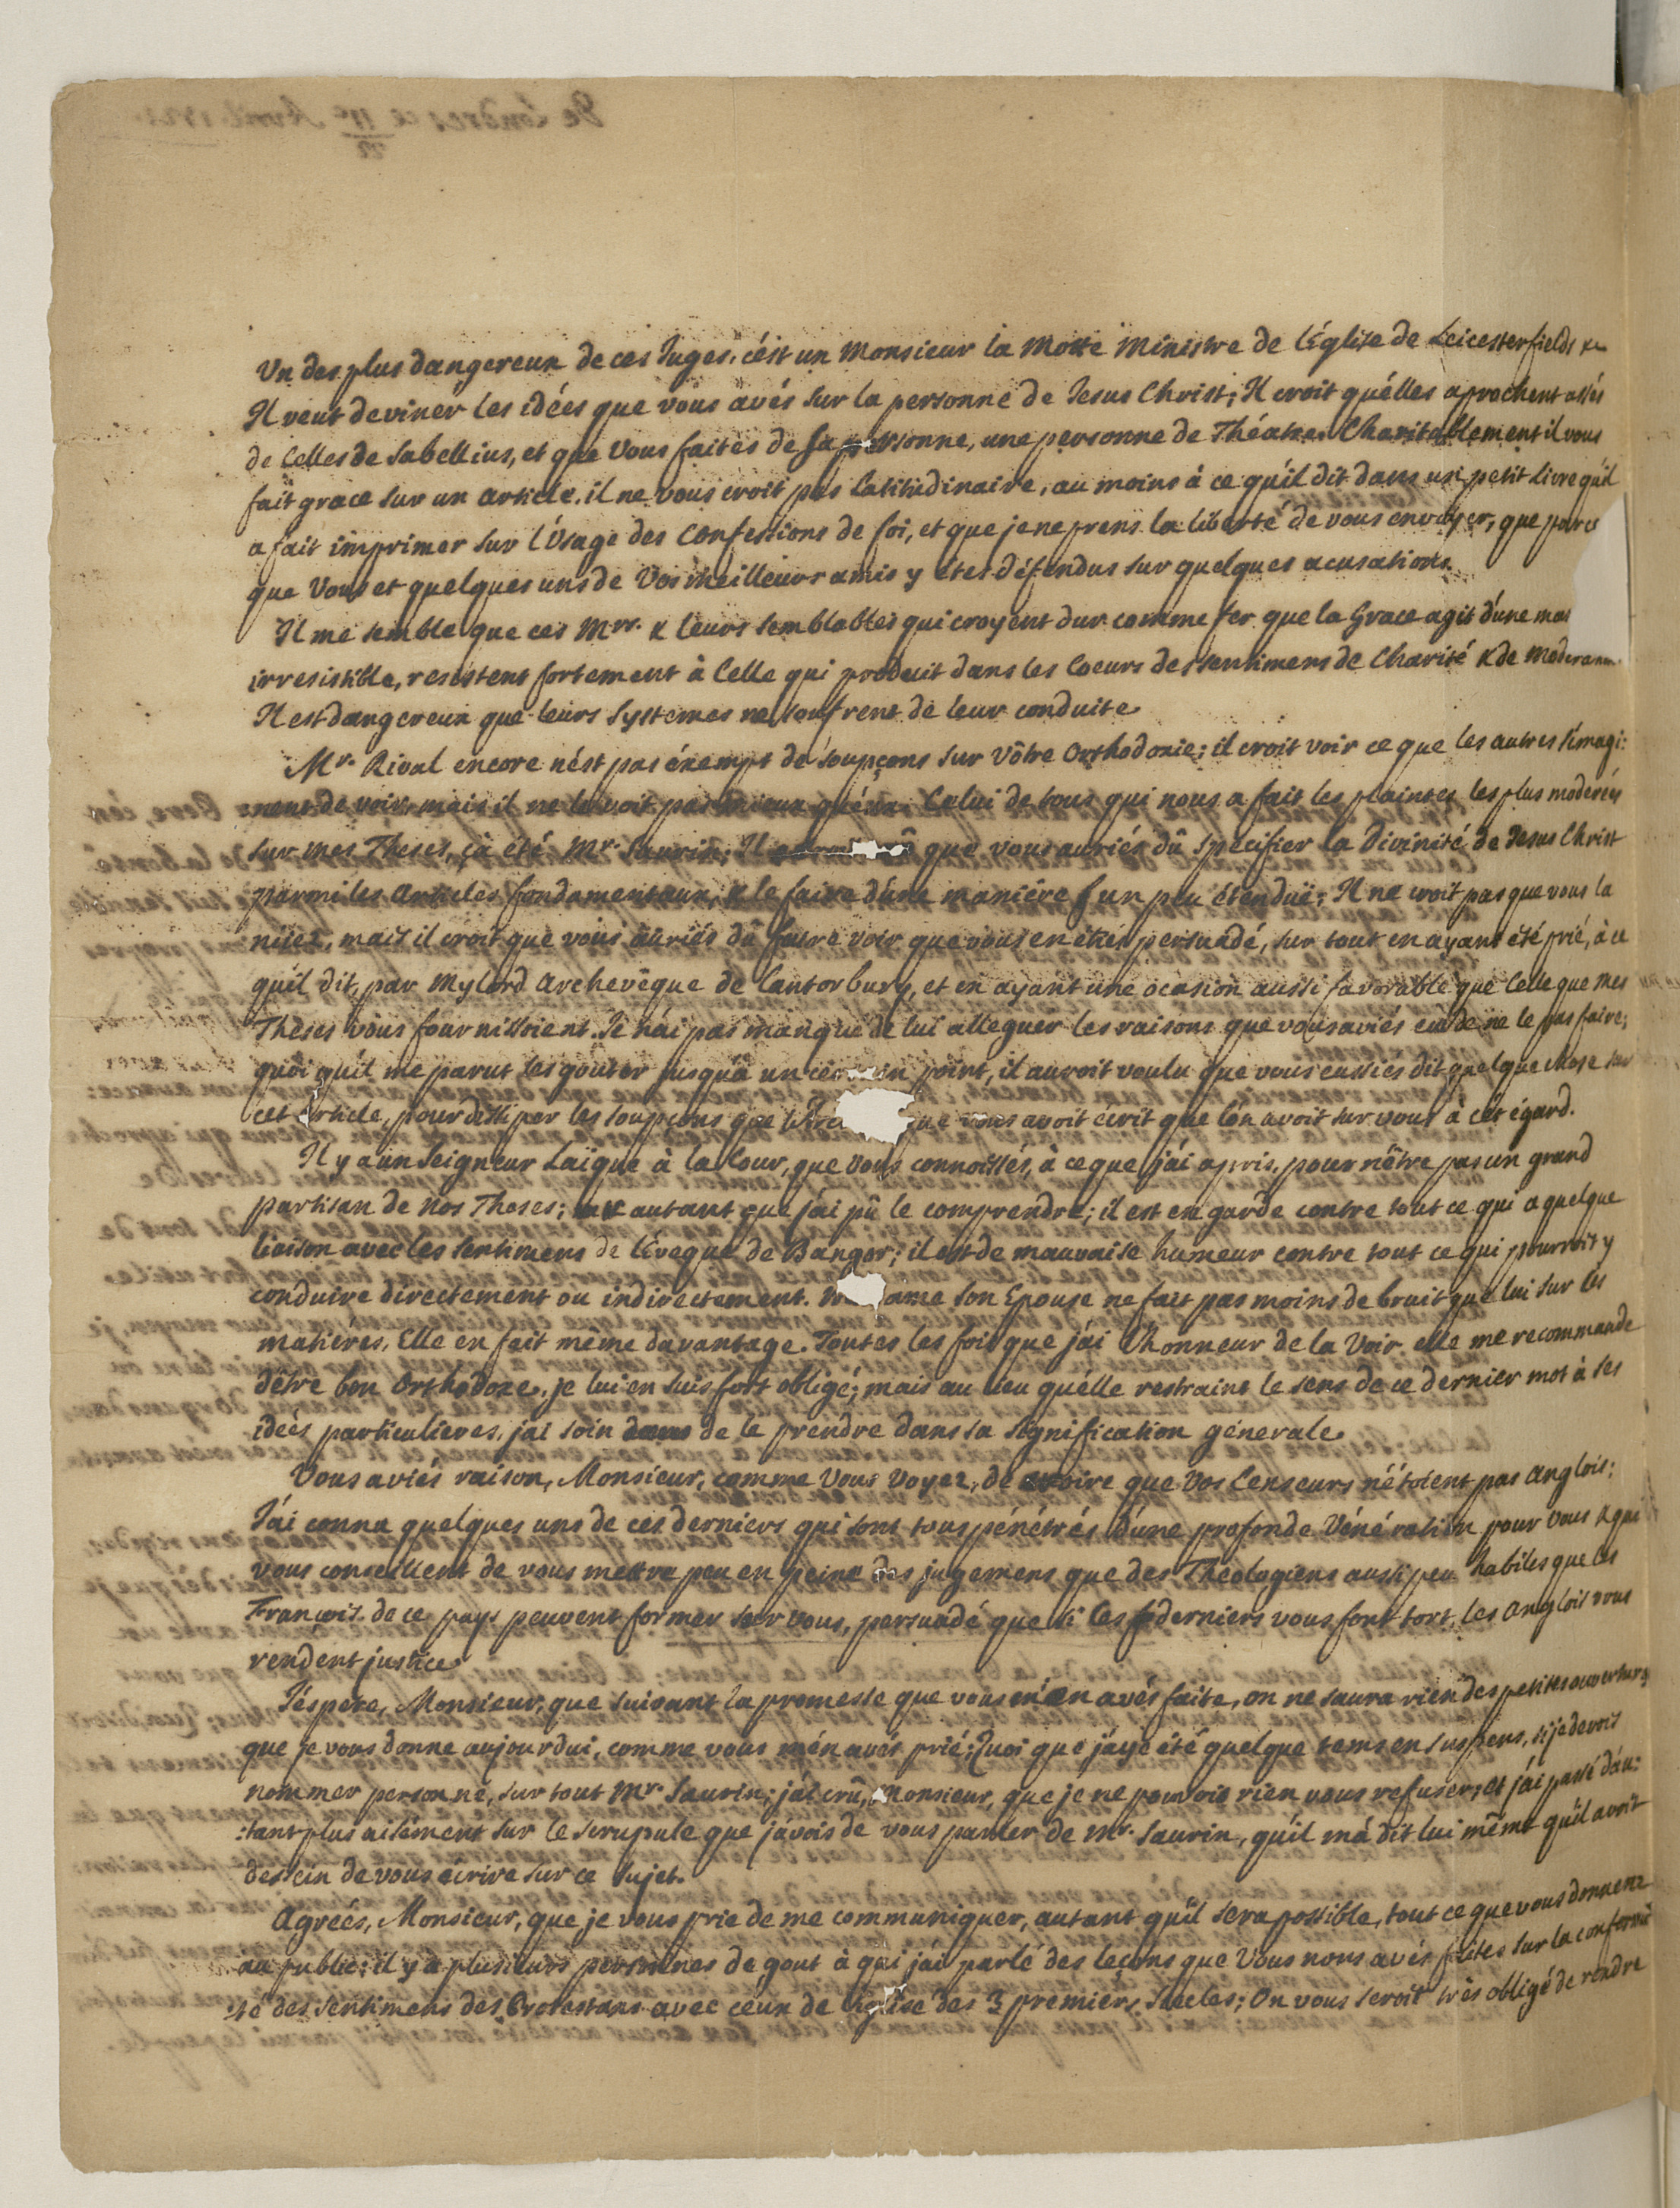 Un des plus dangereux de ces Juges, c'ést un Monsieur la Motte Ministre de l'Église de Leicesterfields &
Il veut deviner les idées que vous avés sur la personne de Jesus Christ; Il croit qu'élles aprochent assés
de Celles de Sabellius, et que Vous faites de sa personne, une personne de Théatre. Charitablement il vous
fait grace sur un article, il ne vous croit pas Latitudinaire, au moins à ce qu'il dit dans un petit livre qu'il
a fait imprimer sur l'Usage des Confessions de foi, et que je ne prens la liberté de vous envoyer, que parce
que Vous et quelques uns de Vos meilleurs amis y étes défendus sur quelques acusations.
Il me semble que ces Mrs. & leurs semblables qui croyent dur comme fer que la Grace agit d'une
irresistible, resistent fortement à Celle qui produit dans les Coeurs des sentimens de Charité & de
Il est dangereux que leurs Systemes ne soufrent de leur conduite.
Mr. Rival encore n'ést pas éxempt de soupçons sur Vôtre Orthodoxie; il croit voir ce que les autres s'imagi:
nent de voir, mais il ne le voit pas mieux qu'éux. Celui de tous qui nous a fait les plaintes les plus moderées
sur mes Theses, ç'a été Mr. Saurin; Il que vous auriés dû specifier la Divinité de Jesus Christ
parmi les Articles fondamentaux, & le faire d'úne maniére un peu étenduë; Il ne croit pas que vous la
niiez, mais il croit que vous auriés dû faire voir que vous en étiés persuadé, sur tout en ayant été prié, à ce
qu'il dit, par Mylord Archevêque de Cantorbury, et en ayant une ocasion aussi favorable que Celle que mes
Theses vous fournissoient. Je n'ai pas manqué de lui alleguer les raisons que vous aviés eu de ne le pas faire;
quoi qu'il me parut les goûter jusqu'à un certain point, il auroit voulu que vous eussiés dit quelque chose sur
cet Article, pour dissiper les soupçons que vous avoit écrit que l'ón avoit sur vous à cét égard.
Il y a un Seigneur Laïque à la Cour, que Vous connoissés, à ce que j'ai apris, pour n'être pas un grand
partisan de nos Theses; autant que j'ai pû le comprendre; il est en garde contre tout ce qui a quelque
liaison avec les sentimens de l'Éveque de Bangor; il est de mauvaise humeur contre tout ce qui pourroit y
conduire directement ou indirectement. Madame son Epouse ne fait pas moins de bruit que lui sur les
matiéres, Elle en fait même davantage. Toutes les fois que j'ai l'honneur de la Voir elle me recommande
d'être bon Orthodoxe, je lui en suis fort obligé; mais au lieu qu'élle restraint le sens de ce dernier mot à ses
idées particulieres, j'ai soin de le prendre dans sa signification génerale.
Vous aviés raison, Monsieur, comme Vous Voyez, de croire que Vos Censeurs n'étoient pas Anglois;
J'ái connu quelques uns de ces derniers qui sont tous pénétrés d'une profonde Vénération pour Vous & qui
vous conseillent de vous mettre peu en peine des jugemens que des Théologiens aussi peu habiles que les
François de ce pays peuvent former sur vous, persuadé que si les derniers vous font tort, les Anglois vous
rendent justice.
J'éspere, Monsieur, que suivant la promesse que vous m'en avés faite, on ne saura rien des petites ouvertures
que je vous donne aujourdui, comme vous m'en avés prié; Quoi que j'áye été quelque tems en suspens, si je devois
nommer personne, sur tout Mr. Saurin; j'ai crû, Monsieur, que je ne pouvois rien vous refuser, et j'ái passé d'áu:
:tant plus aisément sur le scrupule que j'ávois de vous parler de Mr. Saurin, qu'il m'á dit lui même qu'il avoit
dessein de vous écrire sur ce sujet.
Agreés, Monsieur, que je vous prie de me communiquer, autant qu'il sera possible, tout ce que vous donnerez
au public; il y a plusieurs personnes de gout à qui j'ai parlé des leçons que Vous nous avés faites sur la conformi
:té des sentimens des Protestans avec ceux de l'Eglise des 3 premiers Siecles; On vous seroit très obligé de rendre